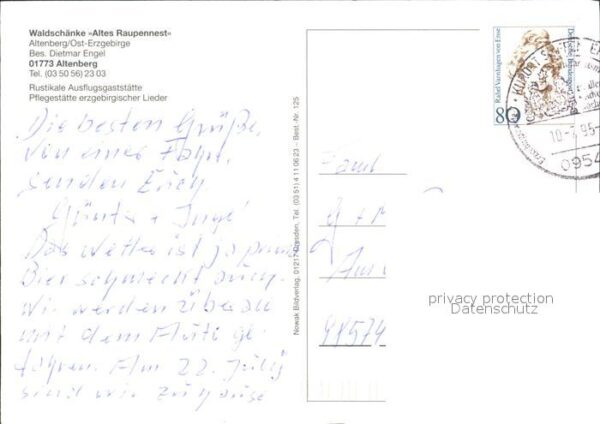 Waldschänke »Altes Raupennest«
Altenberg/Ost-Erzgebirge
Bes. Dietmar Engel
01773 Altenberg
Tel. (03 50 56) 23 03
Rustikale Ausflugsgaststätte
Pflegestätte erzgebirgischer Lieder
Die besten Grüße,
von einer Fahrt,
senden Euch
Günter + Inge
Das Wetter ist ja prima
Bier schmeckt auch.
Wir werden überall
mit dem Auto ge-
fahren. Am 22. July
sind wir zuhause
Nowak Bildverlag, 01217 Dresden, Tel. (03 51) 4 11 06 23 – Best.-Nr. 125
Rahel Varnhagen von Ense
Deutsche Bundespost
80
KURORT
10.-7.95
0954
Faml
G + M
98574
privacy protection
Datenschutz